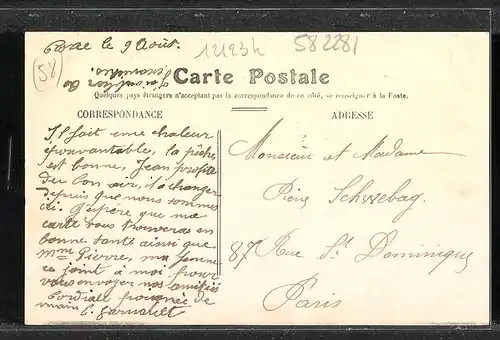 le 9 Août.
12123h
582281
(58)
Carte Postale
Quelques pays étrangers n'acceptant pas la correspondance de ce côté, se renseigner à la Poste.
CORRESPONDANCE
ADRESSE
Il fait une chaleur
épouvantable, la pêche
est bonne, Jean profite
du bon air, il a changer
depuis que nous sommes
ici. J'espère que ma
carte vous trouveras en
bonne santé ainsi que
Mme Pierre, ma femme
ce joint à moi pour
vous envoyer nos amitiés
Cordiale poignée de
main
Monsieur et Madame
Pierre Schwebag.
87 Rue St Dominique
Paris